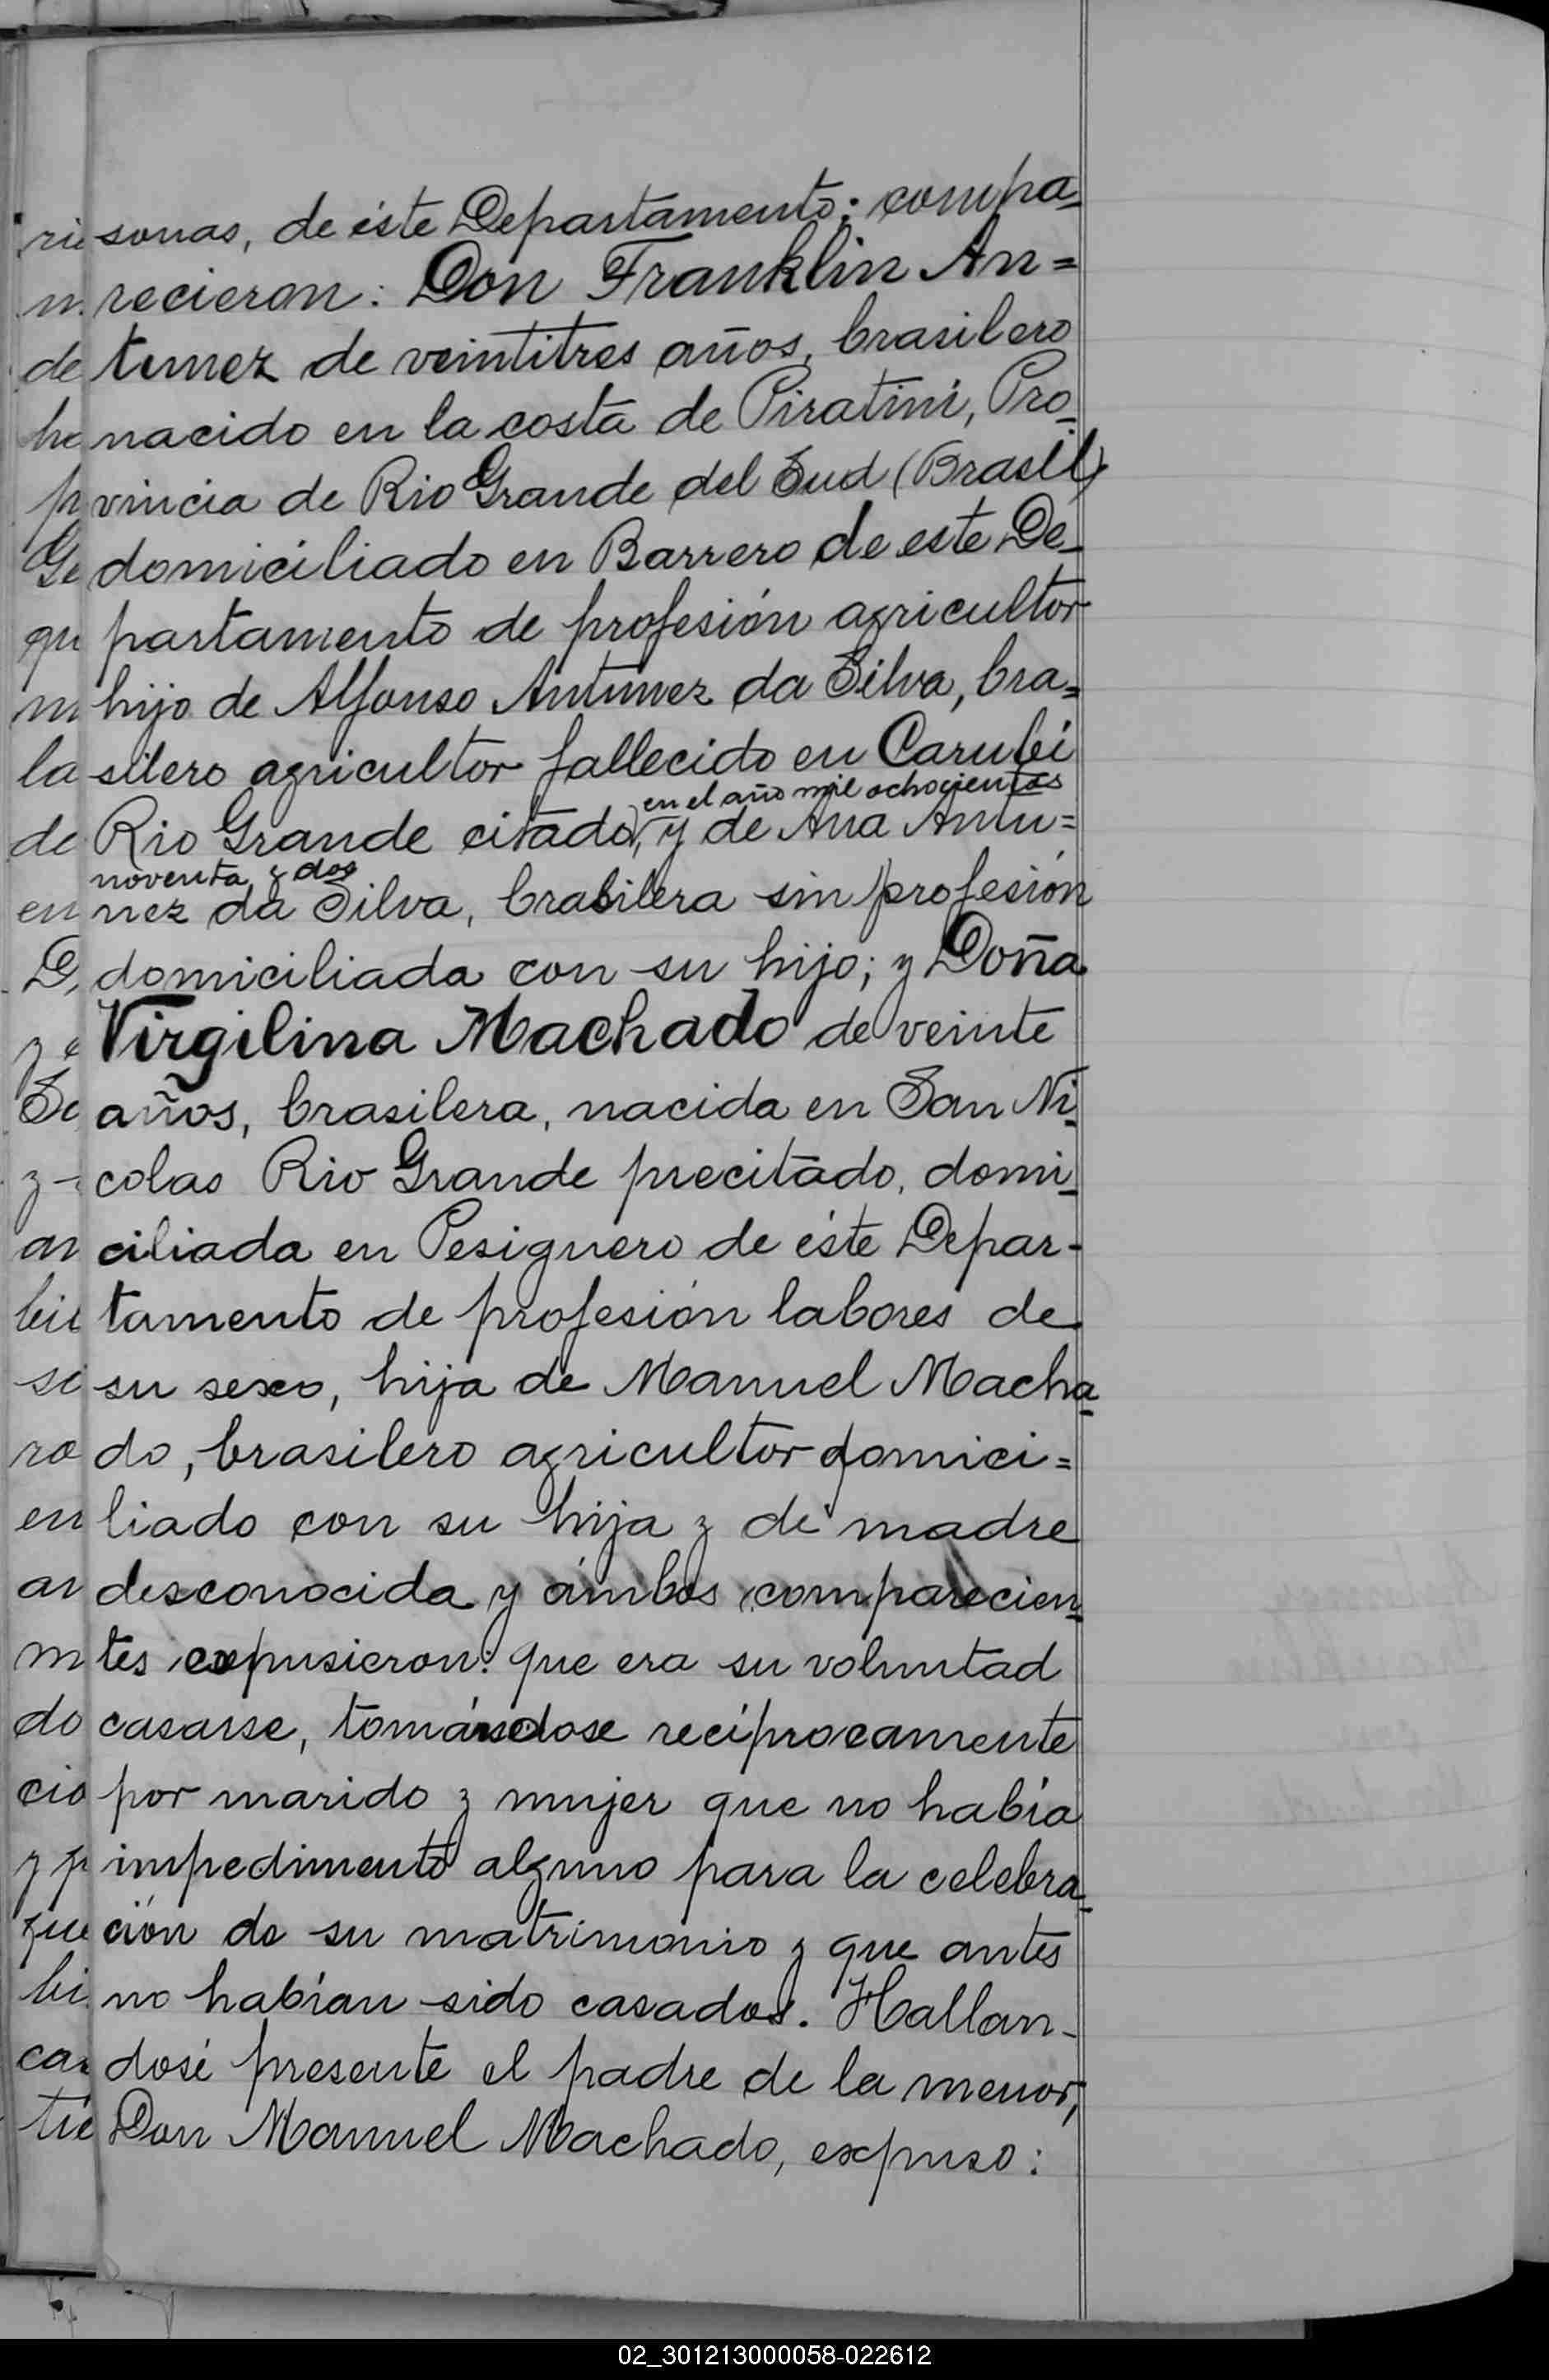 sonas, de éste Departamento; compa-
recieron: Don Franklin An=
tunez de veintitres años, brasilero
nacido en la costa de Piratini, Pro-
vincia de Rio Grande del Sud (Brasil)
domiciliado en Barrero de este De-
partamento de profesión agricultor
hijo de Alfonso Antunez da Silva, bra=
silero agricultor fallecido en
en el año mil ochocientos
Rio Grande citado, y de Ana Antu=
noventa y dos
nez da Silva, brasilera sin profesión
domiciliada con su hijo; y Doña
Virgilina Machado de veinte
años, brasilera, nacida en San Ni-
colas Rio Grande precitado, domi-
ciliada en Pesiguero de éste Depar-
tamento de profesión labores de
su sexo, hija de Manuel Macha-
do, brasilero agricultor domici=
liado con su hija y de madre
desconocida y ámbos comparecien-
tes expusieron: que era su voluntad
casarse, tomándose recíprocamente
por marido y mujer que no había
impedimento alguno para la celebra-
ción de su matrimonio y que antes
no habían sido casados. Hallan-
dosé presente el padre de la menor,
Don Manuel Machado, expuso:
02_301213000058-022612